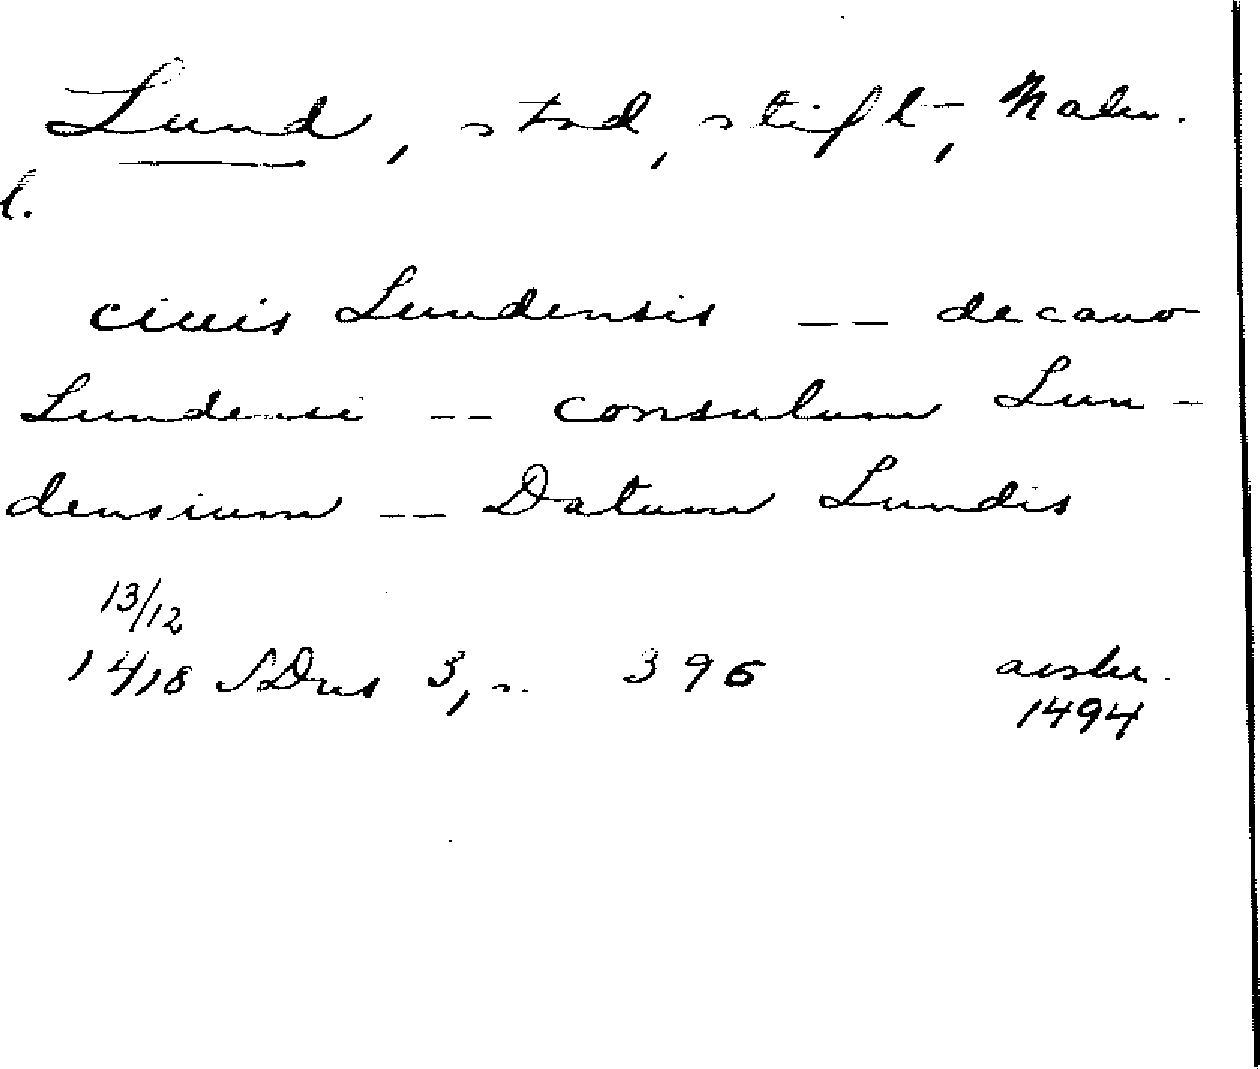 Lund, stad, stift, Malm.
l.
civis Lundensis -- decano
Lundensi -- consulum Lun-
densium -- Datum Lundis
13/12
1418 SDns 3, s. 396 avskr.
1494